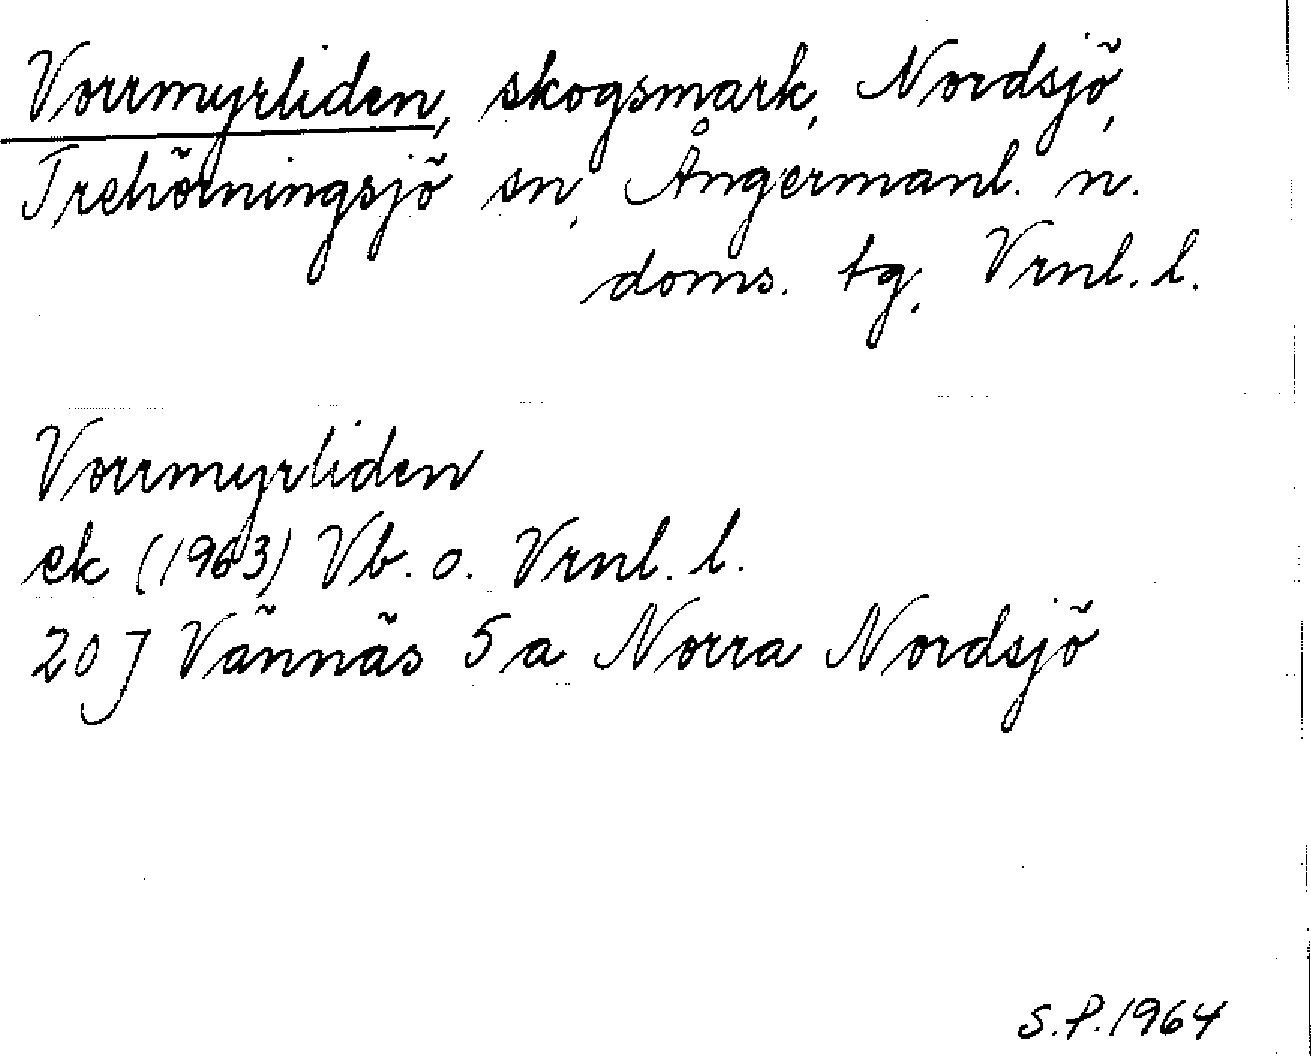 Vorrmyrliden, skogsmark, Nordsjö,
Trehörningsjö sn, Ångermanl. n.
doms. tg, Vrnl. l.
Vorrmyrliden
ek (1963) Vb. o. Vrnl. l.
20 J Vännäs 5 a Norra Nordsjö
S.P. 1964